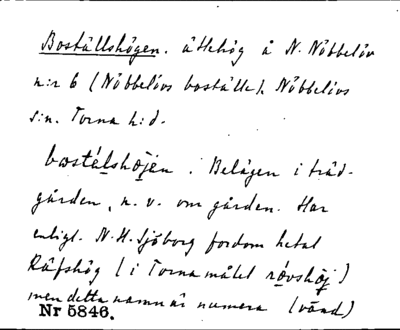 Boställshögen. ättehög å N. Nöbbelöv
n:r 6 (Nöbbelövs boställe). Nöbbelövs
s:n. Torna h:d.
bωstálshǿjèn. Belägen i träd-
gården, n.v. om gården. Har
enligt. N. H. Sjöborg fordom hetat
Räfshög (i Torna målet rǿvshǿj)
men detta namn är numera (vänd)
Nr 5846.